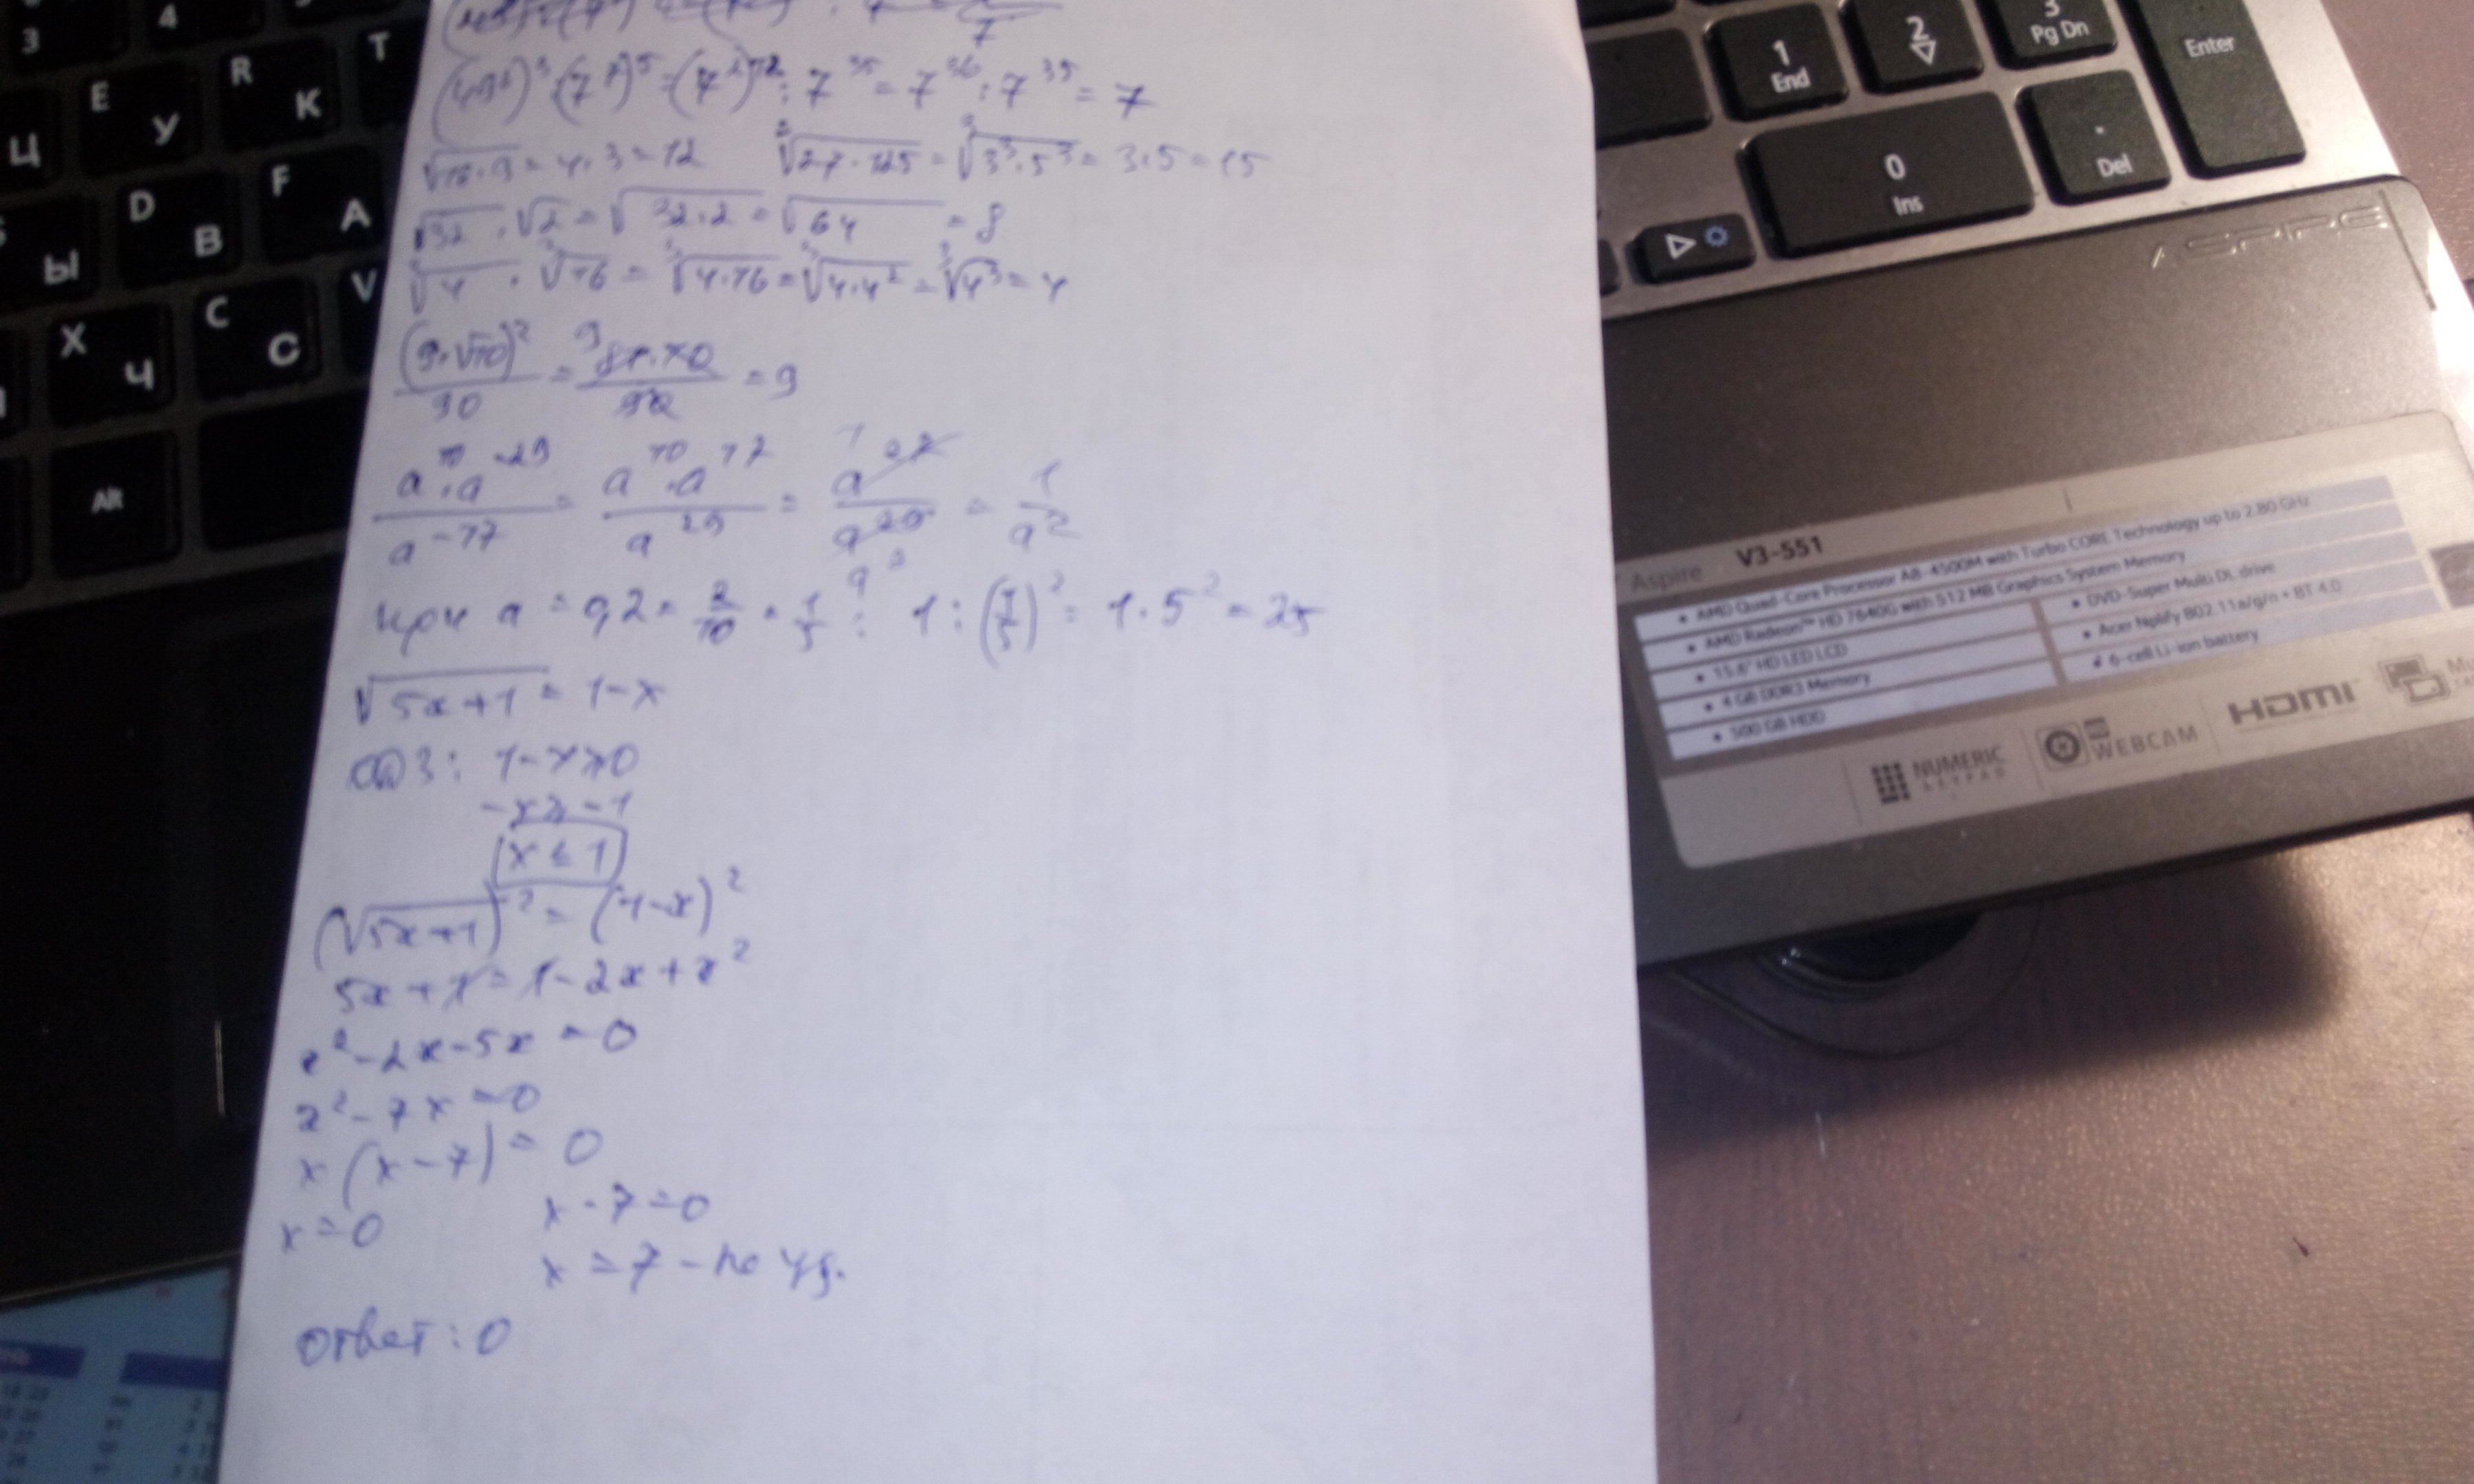 (49⁶)³:(7⁷)⁵=(7²)¹⁸:7³⁵=7³⁶:7³⁵=7
√16·9=4·3=12 ³√27·125=³√3³·5³=3·5=15
√32·√2=√32·2=√64=8
³√4·³√16=³√4·16=³√4·4²=³√4³=4
(9·√10)²/90=81·10/90=9
a¹⁰·a⁻²⁹/a⁻¹⁷=a¹⁰·a¹⁷/a²⁹=a²⁷/a²⁹=1/a²
при a=0,2=2/10=1/5: 1:(1/5)²=1·5²=25
√5x+1=1-x
ОДЗ: 1-x≥0
-x≥-1
x≤1
(√5x+1)²=(1-x)²
5x+1=1-2x+x²
x²-2x-5x=0
x²-7x=0
x(x-7)=0
x=0 x-7=0
x=7-не уд.
Ответ: 0
3
4
T
E
У
R
К
Ц
D
В
F
А
Ы
X
Ч
C
С
V
Alt
1
End
2
3
Pg Dn
Enter
0
Ins
.
Del
ASPIRE
Aspire V3-551
AMD Quad-Core Processor A8-4500M with Turbo CORE Technology up to 2.80 GHz
AMD Radeon™ HD 7640G with 512 MB Graphics System Memory
15.6" HD LED LCD
4 GB DDR3 Memory
500 GB HDD
DVD-Super Multi DL drive
Acer Nplify 802.11a/g/n + BT 4.0
6-cell Li-ion battery
NUMERIC
KEYPAD
HD
WEBCAM
HDMI